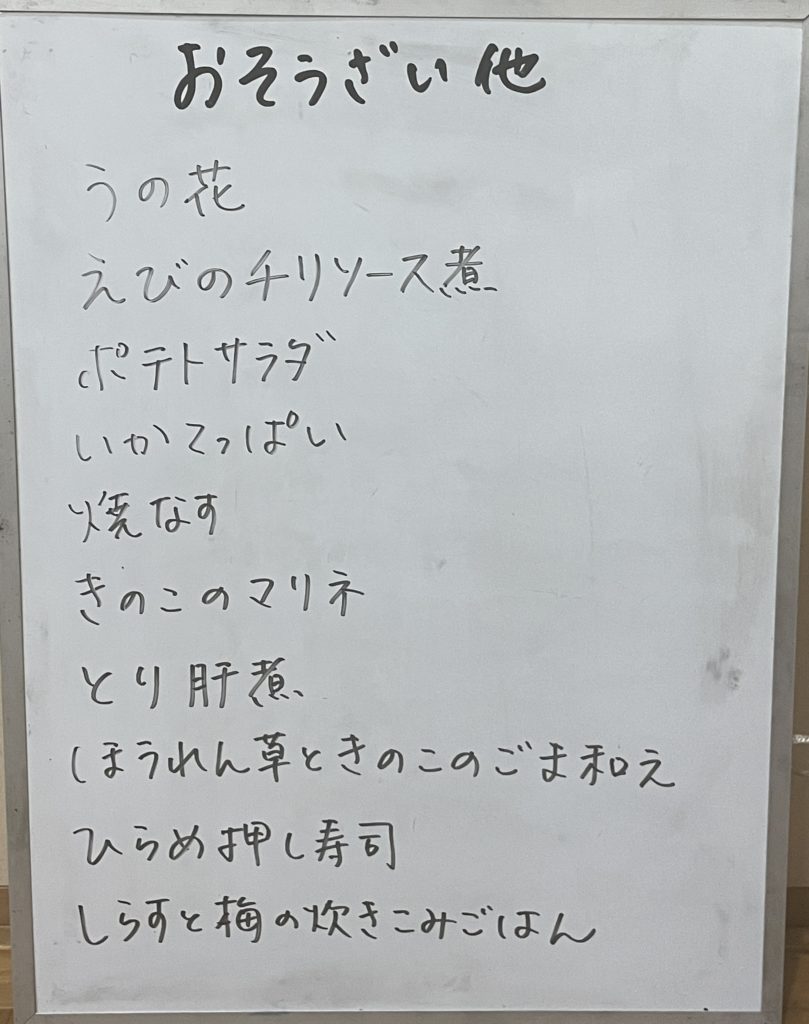 おそうざい他
うの花
えびのチリソース煮
ポテトサラダ
いかてっぱい
焼なす
きのこのマリネ
とり肝煮
ほうれん草ときのこのごま和え
ひらめ押し寿司
しらすと梅の炊きこみごはん